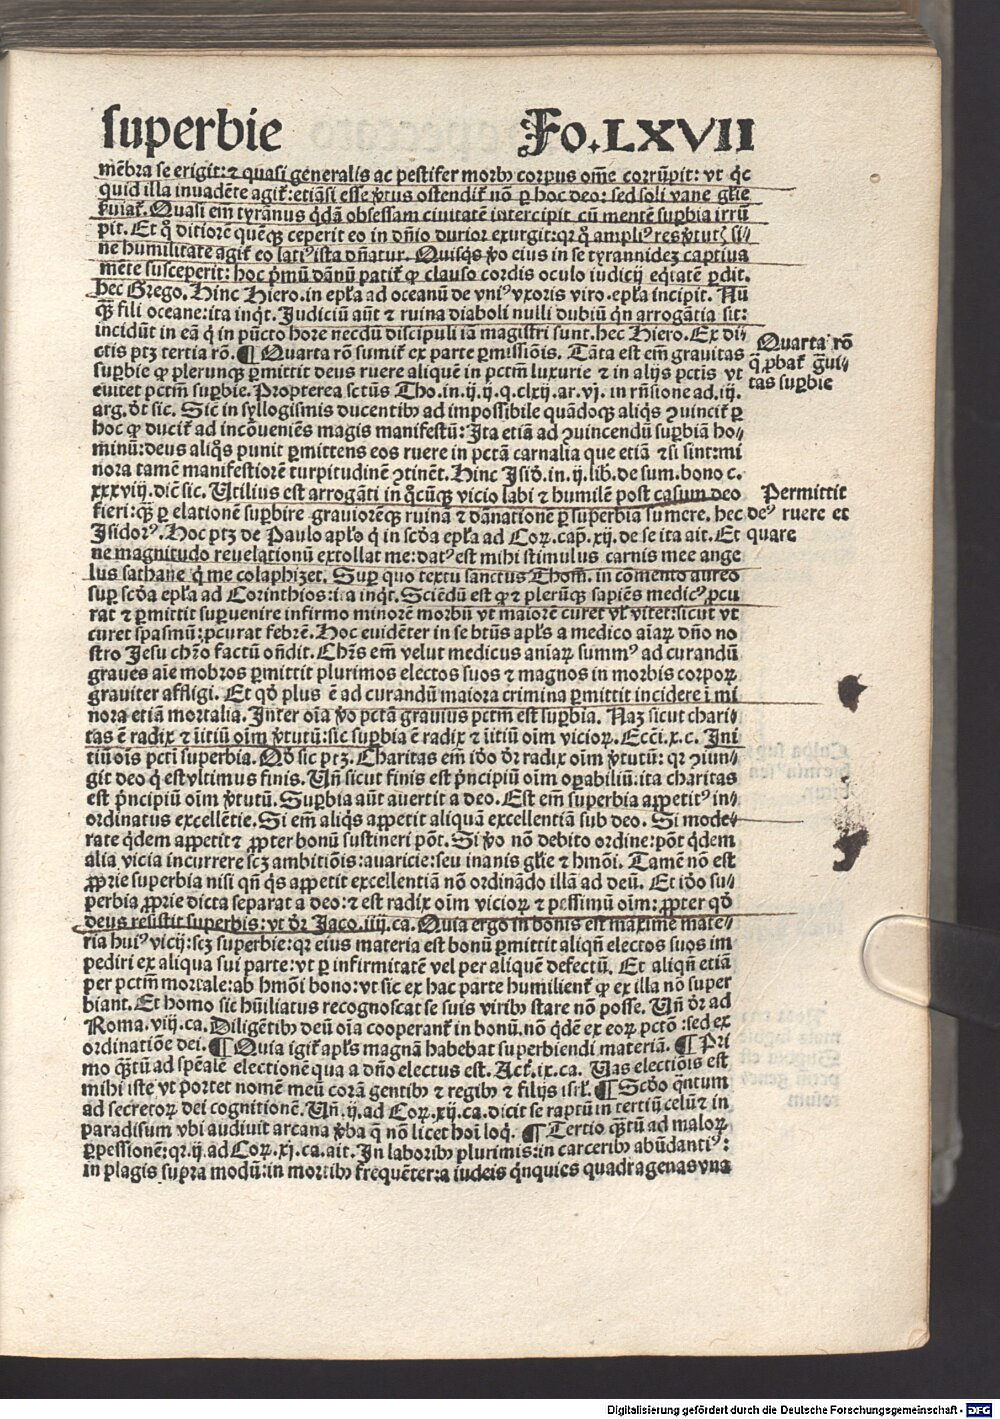 superbie Fo.LXVII
mēbra se erigit:⁊ quasi generalis ac pestifer morbꝰ corpus om̄e corrūpit: vt q̇c
quid illa inuadēte agit̄:etiāsi esse v̓tus ostendit̄ nō ꝑ hoc deo: sed soli vane gl̄ie
ẜuiat̄. Quasi em̄ tyrānus q̇dā obsessam ciuitatē intercipit cū mentē suꝑbia irrū
pit. Et q̊ ditiorē quēqꝫ ceperit eo in dn̄io durior exurgit:qꝛ q̊ ampliꝰ res v̓tutꝭ si⸗
ne humilitate agit̄ eo latiꝰ ista dn̄atur. Quisqs v̓o eius in se tyrannidez captiua
mēte susceperit: hoc pͥmū dānū patit̄ ꝙ clauso cordis oculo iudicij eq̇tatē ꝑdit.
hec Grego. Hinc Hiero.in epl̄a ad oceanū de vniꝰ vxoris viro.epl̄a incipit. Nū
qꝫ fili oceane:ita inqt. Judiciū aūt ⁊ ruina diaboli nulli dubiū qn̄ arrogātia sit:
incidūt in eā q̇ in pūcto hore necdū discipuli iā magistri sunt.hec Hiero. Ex di⸗
ctis ptꝫ tertia rō. ¶ Quarta rō sumit̄ ex parte ꝑmissiōis. Tāta est em̄ grauitas
suꝑbie ꝙ plerunqꝫ ꝑmittit deus ruere aliquē in pctm̄ luxurie ⁊ in alijs pctis vt
euitet pctm̄ suꝑbie. Propterea sctūs Tho.in.ij.ij.q.clxij.ar.vj. in rn̄sione ad.iij.
arg.dt̄ sic. Sic̄ in syllogismis ducentibꝰ ad impossibile quādoqꝫ aliqs ꝯuincit̄ ꝑ
hoc ꝙ ducit̄ ad incōueniēs magis manifestū: Ita etiā ad ꝯuincendū suꝑbiā ho⸗
minū:deus aliqs punit ꝑmittens eos ruere in pctā carnalia que etiā ⁊si sint:mi
nora tamē manifestiorē turpitudinē ꝯtinēt. Hinc Isid̄. in.ij.lib.de sum.bono c.
xxxviij.dic̄ sic. Utilius est arrogāti in q̊cūqꝫ vicio labi ⁊ humilē post casum deo
fieri:qꝫ ꝑ elationē suꝑbire grauiorēqꝫ ruinā ⁊ dānationē ꝑ superbia sumere. hec
Isidorꝰ. Hoc ptꝫ de Paulo apl̄o q̇ in scd̄a epl̄a ad Coꝝ.cap̄.xij.de se ita ait. Et
ne magnitudo reuelationū extollat me:datꝰ est mihi stimulus carnis mee ange
lus sathane q̇ me colaphizet. Suꝑ quo textu sanctus Thom̄. in cōmento aureo
suꝑ scd̄a epl̄a ad Corinthios:ita inqt. Sciēdū est ꝙ ⁊ plerūqꝫ sapiēs medicꝰ ꝓcu
rat ⁊ ꝑmittit suꝑuenire infirmo minorē morbū vt maiorē curet vl̄ vitet:sicut vt
curet spasmū:ꝓcurat febrē. Hoc euidēter in se btūs apl̄s a medico aīaꝝ dn̄o no
stro Jesu chr̄o factū on̄dit. Chr̄s em̄ velut medicus anīaꝝ summꝰ ad curandū
graues aīe mobros ꝑmittit plurimos electos suos ⁊ magnos in morbis corpoꝝ
grauiter affligi. Et qd̄ plus ē ad curandū maiora crimina ꝑmittit incidere ī mi
nora etiā mortalia. Inter oīa v̓o pctā grauius pctm̄ est suꝑbia. Naꝫ sicut chari⸗
tas ē radix ⁊ īitiū oīm v̓tutū:sic suꝑbia ē radix ⁊ īitiū oīm vicioꝝ. Ecc̄i.x.c. Ini
tiū oīs pcti superbia. Qd̄ sic ptꝫ. Charitas em̄ id̄o dr̄ radix oīm v̓tutū: qꝛ ꝯiun⸗
git deo q̇ est vltimus finis. Un̄ sicut finis est pͥncipiū oīm oꝑabiliū:ita charitas
est pͥncipiū oīm v̓tutū. Suꝑbia aūt auertit a deo. Est em̄ superbia appetitꝰ in⸗
ordinatus excellētie. Si em̄ aliqs appetit aliquā excellentiā sub deo. Si mode⸗
rate qdem appetit ⁊ ꝓpter bonū sustineri pōt. Si v̓o nō debito ordine:pōt qdem
alia vicia incurrere scꝫ ambitiōis:auaricie:seu inanis gl̄ie ⁊ hmōi. Tamē nō est
ꝓprie superbia nisi qn̄ qs appetit excellentiā nō ordinādo illā ad deū. Et id̄o su⸗
perbia ꝓprie dicta separat a deo:⁊ est radix oīm vicioꝝ ⁊ pessimū oīm: ꝓpter qd̄
deus resistit superbis:vt dr̄ Jaco.iiij.ca. Quia ergo in bonis est maxime mate⸗
ria huiꝰ vicij:scꝫ superbie:qꝛ eius materia est bonū ꝑmittit aliqn̄ electos suos im
pediri ex aliqua sui parte:vt ꝑ infirmitatē vel per aliquē defectū. Et aliqn̄ etiā
per pctm̄ mortale:ab hmōi bono:vt sic ex hac parte humilient̄ ꝙ ex illa nō super
biant. Et homo sic hūiliatus recognoscat se suis viribꝰ stare nō posse. Un̄ dr̄ ad
Roma.viij.ca. Diligētibꝰ deū oīa cooperant̄ in bonū.nō qdē ex eoꝝ pctō :sed ex
ordinatiōe dei. ¶ Quia igit̄ apl̄s magnā habebat superbiendi materiā. ¶ Pri
mo qꝫtū ad spēale electionē qua a dn̄o electus est. Act̄.ix.ca. Uas electiōis est
mihi iste vt portet nomē meū corā gentibꝰ ⁊ regibꝰ ⁊ filijs isrl̄. ¶ Scd̄o q̄ntum
ad secretoꝝ dei cognitionē. Un̄.ij.ad Coꝝ.xij.ca.dicit se raptū in tertiū celū ⁊ in
paradisum vbi audiuit arcana v̓ba q̄ nō licet hoī loq̇. ¶ Tertio qꝫtū ad maloꝝ
ꝑpessionē:qꝛ.ij.ad Coꝝ.xj.ca.ait. In laboribꝰ plurimis:in carceribꝰ abūdantiꝰ:
in plagis supra modū:in mortibꝰ frequēter:a iudeis qnquies quadragenas vna
Quarta rō
q̇ ꝓbat̄ g̊ui⸗
tas suꝑbie
Permittit
deꝰ ruere et
quare
Digitalisierung gefördert durch die Deutsche Forschungsgemeinschaft - DFG